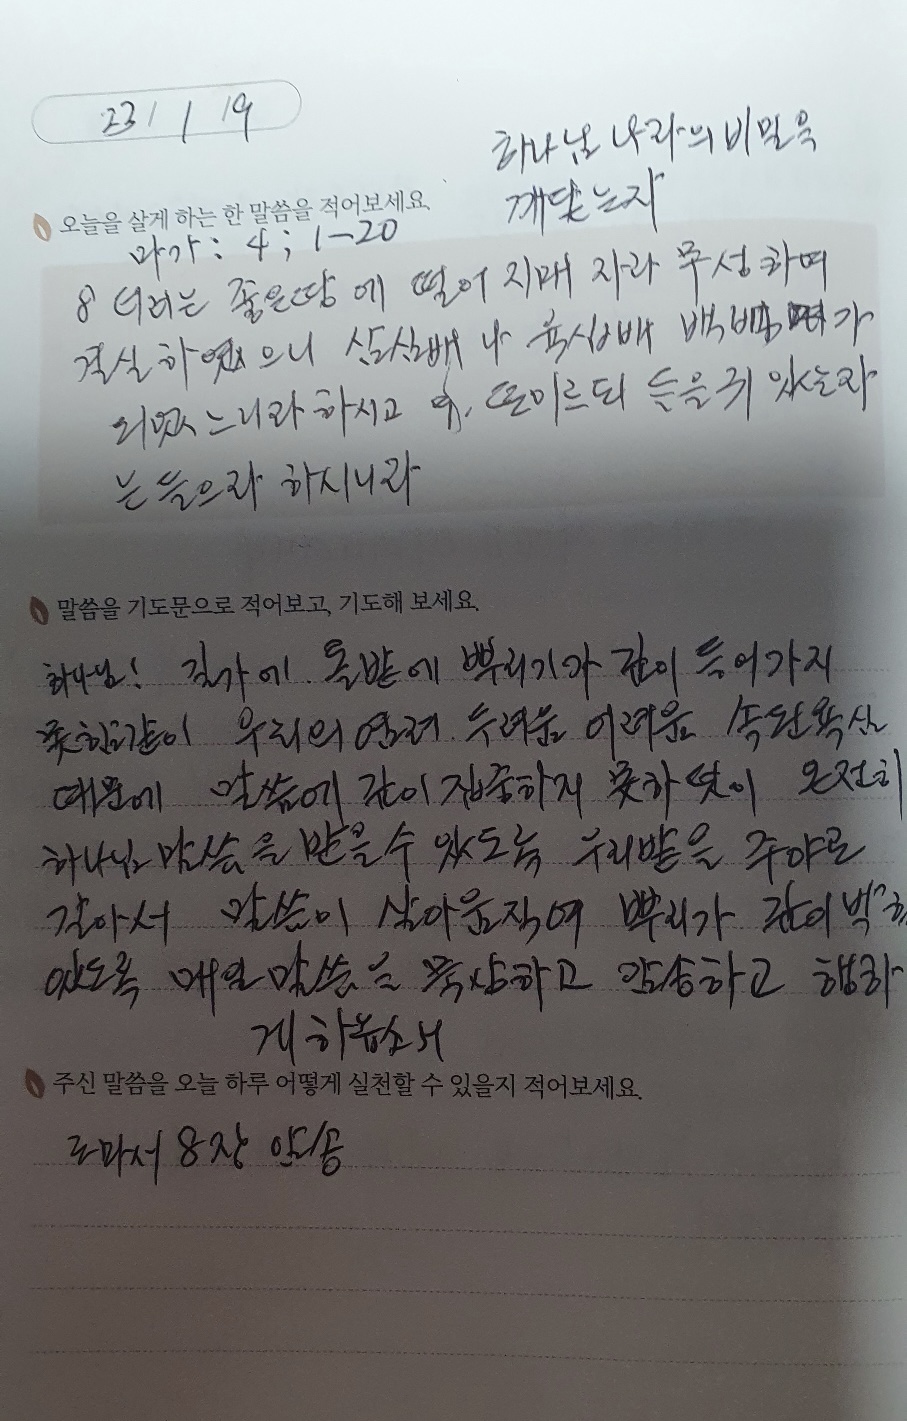 23 / 1 / 19
하나님 나라의 비밀을
깨닫는자
오늘을 살게 하는 한 말씀을 적어보세요.
마가 : 4 ; 1-20
8 더러는 좋은땅에 떨어지매 자라 무성하며
결실하였으니 삼십배나 육십배 백배가
되었느니라 하시고 9, 또이르되 들을귀 있는자
는 들으라 하시니라
말씀을 기도문으로 적어보고, 기도해 보세요.
하나님! 길가에. 돌밭에 뿌리기가 깊이 들어가지
못함같이 우리의 염려. 두려움 어려움 속단욕심
때문에 말씀에 깊이 집중하지 못하 땃이 온전히
하나님 말씀을 받을수 있도록 우리밭을 주야로
갈아서 말씀이 살아움직여 뿌리가 깊이박
있도록 매일말씀을 묵상하고 암송하고 행하
게 하옵소서
주신 말씀을 오늘 하루 어떻게 실천할 수 있을지 적어보세요.
로마서 8장 암송